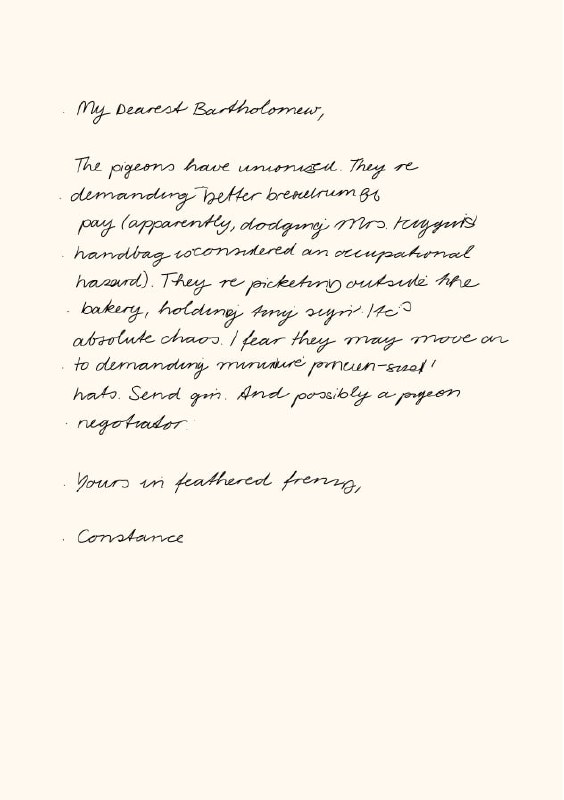 My Dearest Bartholomew,
The pigeons have unionised. They re
demanding better
pay (apparently, dodging Mrs.
handbag is considered an occupational
hazard). They re picketing outside the
bakery, holding tiny
absolute chaos. I fear they may move on
to demanding
hats. Send gin. And possibly a pigeon
negotiator.
Yours in feathered frenzy,
Constance